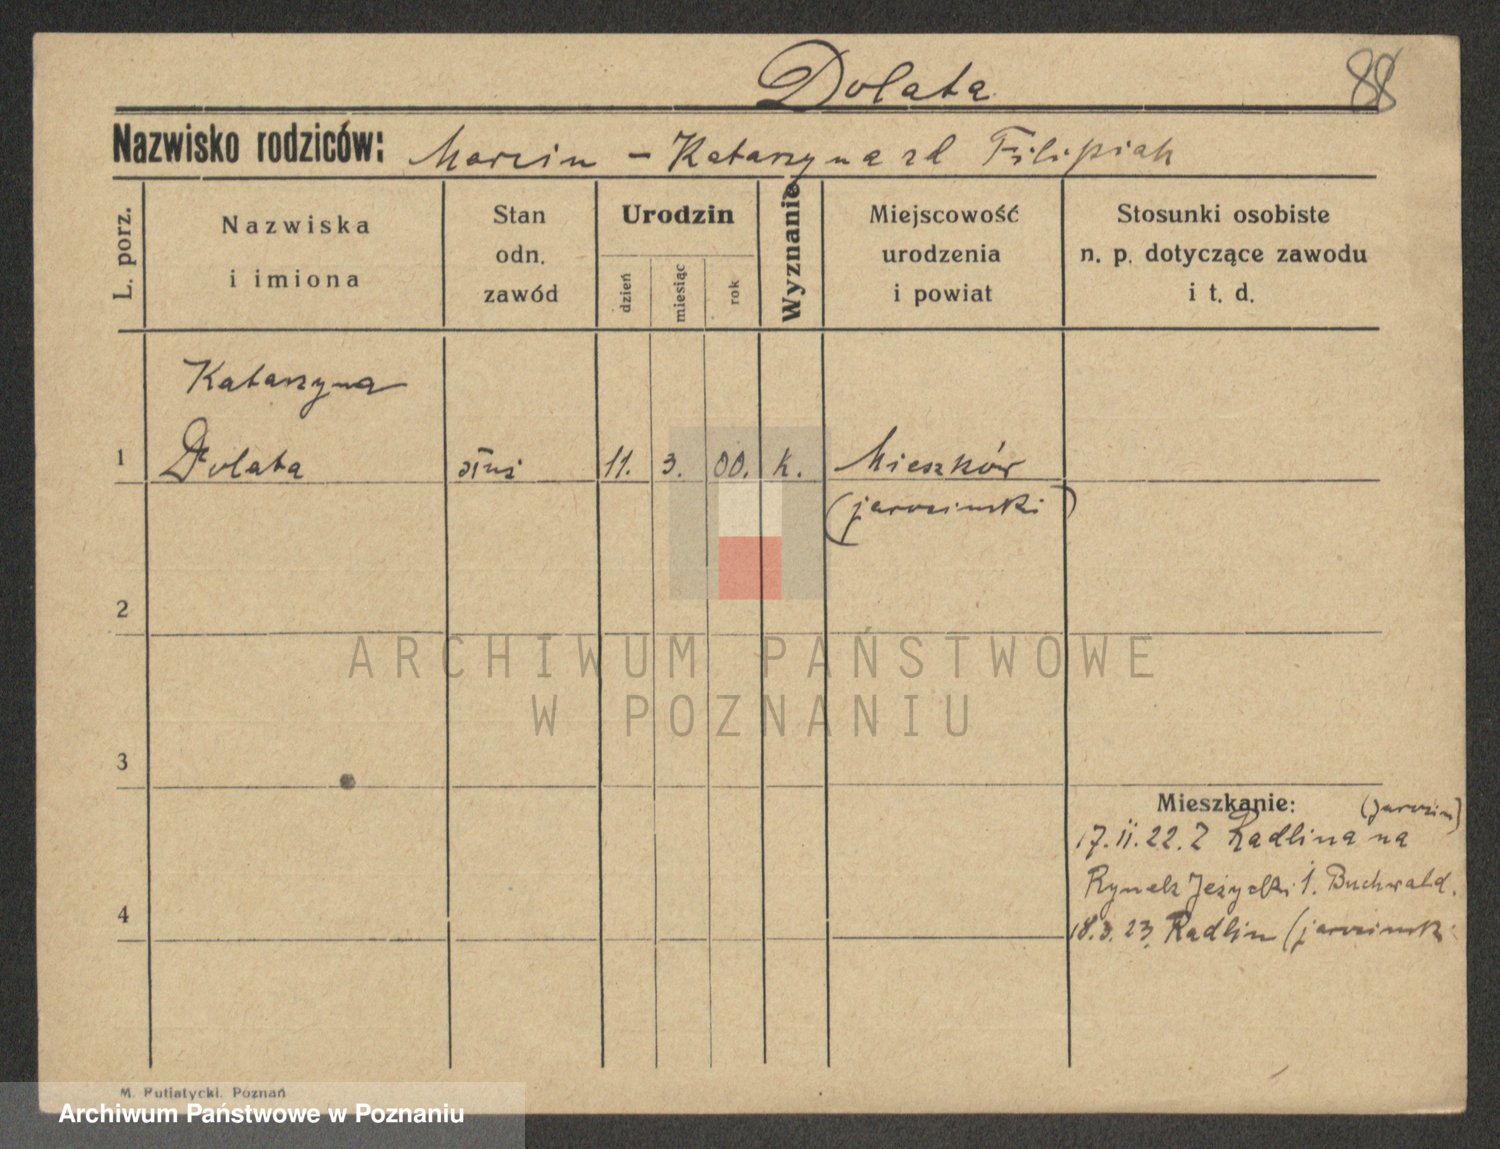 Dolata
88
Nazwisko rodziców: Marcin - Katarzyna zd Filipiak
L. porz.
Nazwiska
i imiona
Stan
odn.
zawód
Urodzin
dzień
miesiąc
rok
Wyznanie
Miejscowość
urodzenia
i powiat
Stosunki osobiste
n. p. dotyczące zawodu
i t. d.
Katarzyna
1 Dolata służ 11. 3. 00. k. Mieszków
(jarociński)
2
ARCHIWUM PAŃSTWOWE
W POZNANIU
3
Mieszkanie: (Jarocin)
17.II.22. Z Radlina na
Rynek Jeżycki 1. Buchwald.
4
18.3.23. Radlin (jarocinsk
M. Putiatycki. Poznań
Archiwum Państwowe w Poznaniu